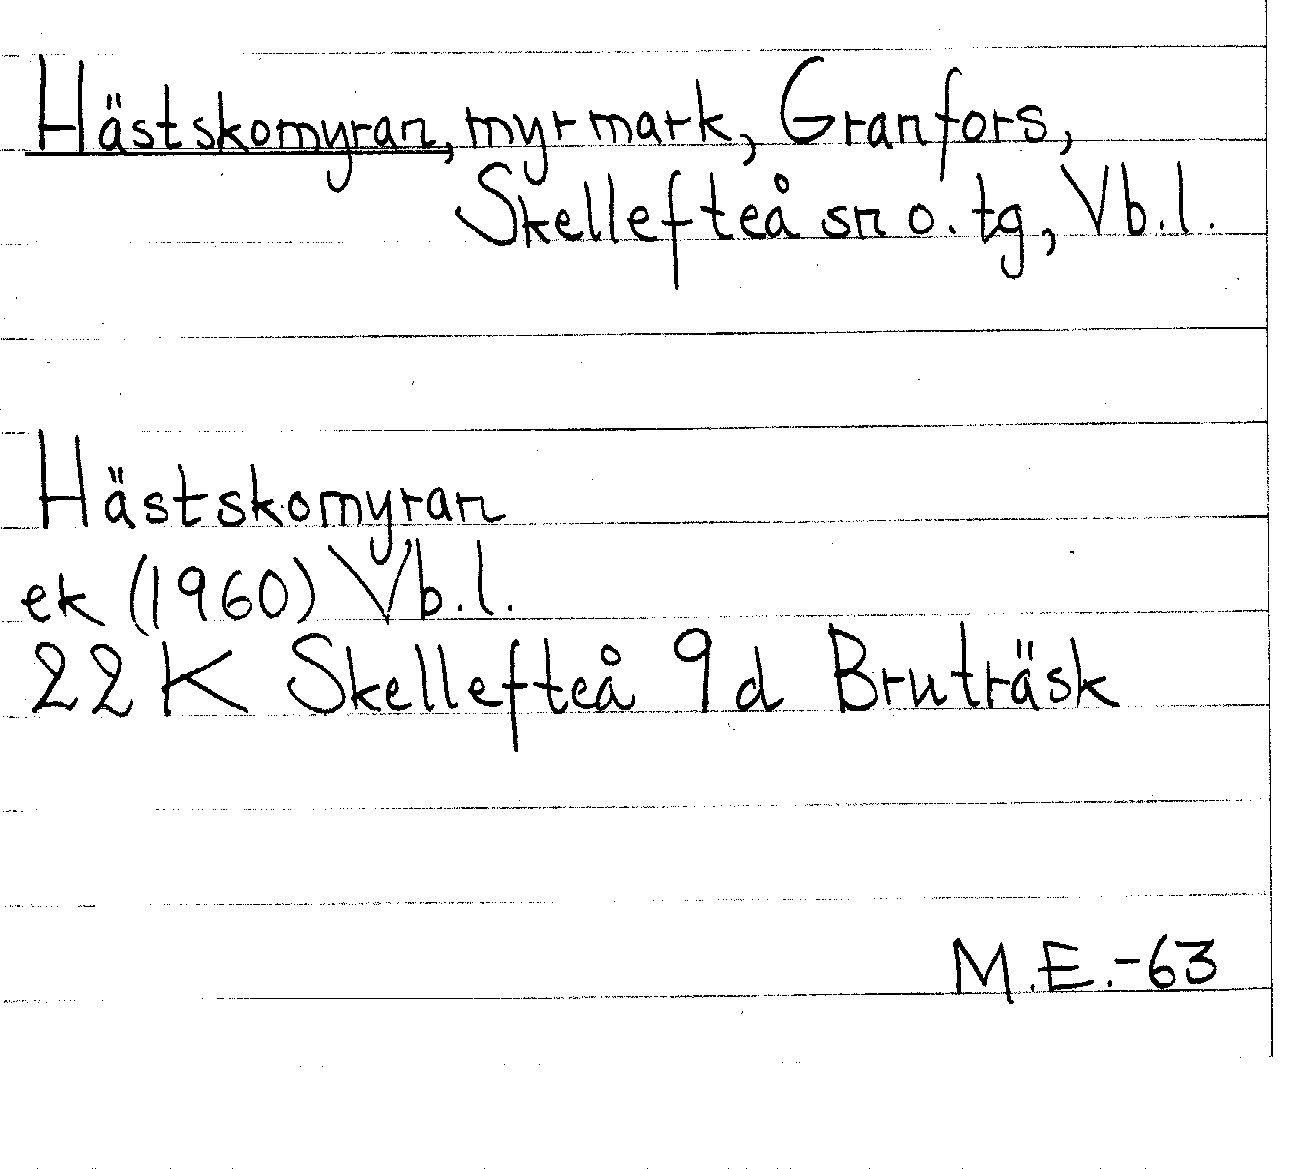 Hästskomyran, myrmark, Granfors,
Skellefteå sn o. tg, Vb.l.
Hästskomyran
ek (1960) Vb.l.
22K Skellefteå 9d Bruträsk
M.E.-63